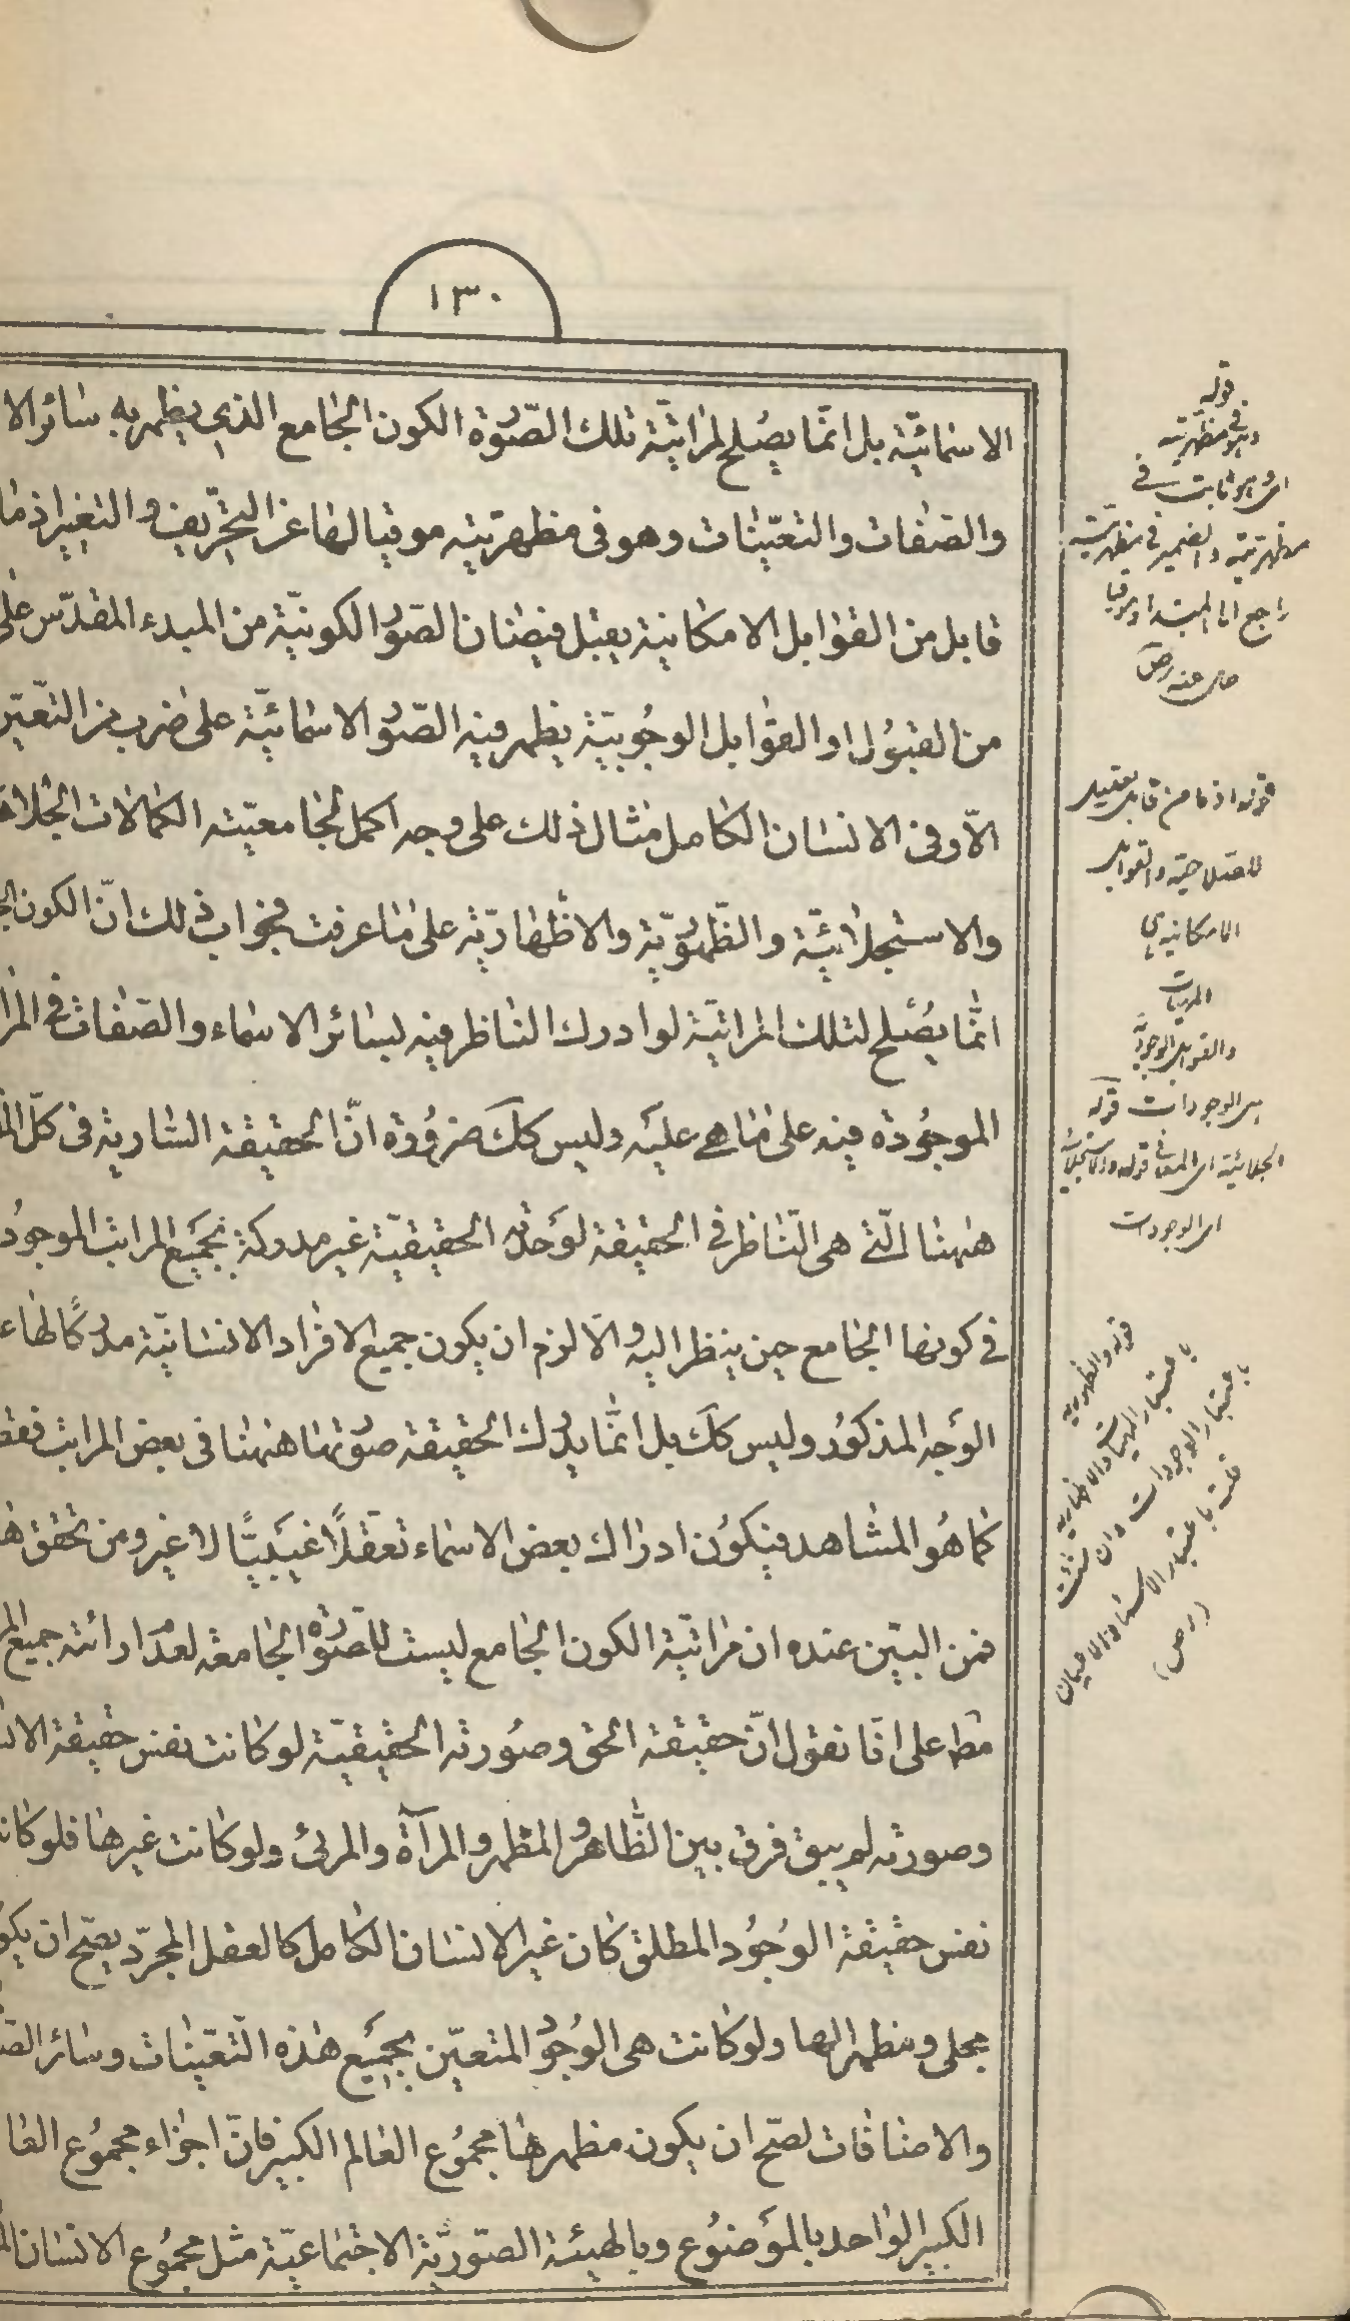 ١٣٠
الاسمائيّة بل انّما يصلح لمراتيّة تلك الصّورة الكون الجامع الذي يظهر به سائر الا
والصّفات والتعيّنات وهو في مظهريّته موقيا لها عن التحريف والتغيير اذ ما
قابل من القوابل الامكانية يقبل فيضان الصّور الكونيّة من المبدء المقدّس على
من القبول او القوابل الوجوبيّة يظهر فيه الصّور الاسمائيّة على ضرب من التعيّن
الّا وفي الانسان الكامل مثال ذلك على وجه اكمل لجامعيّته الكمالات الجلائ
والاستجلائيّة والظّهوريّة والاظهاريّة على ما عرفت فجواب ذلك انّ الكون الج
انّما يصلح لتلك المراتيّة لو ادرك الناظر فيه لسائر الاسماء والصّفات في المرا
الموجودة فيه على ما هي عليه وليس كك ضرورة انّ الحقيقة السّارية في كلّ الم
هيهنا الّتي هي النّاظر في الحقيقة لوحدته الحقيقيّة غير مدركة بجميع المراتب الموجود
في كونها الجامع حين ينظر اليه والّا لزم ان يكون جميع الافراد الانسانيّة مدركًا لها ع
الوجه المذكور وليس كك بل انّما يدرك الحقيقة صورتها هيهنا في بعض المراتب فقط
كما هو المشاهد فيكون ادراك بعض الاسماء تعقّلًا غيبيًّا لا غير ومن تحقق ه
فمن البيّن عنده ان مراتيّة الكون الجامع ليست للصّورة الجامعة لعدم ارائته جميع المر
مط على انّا نقول انّ حقيقة الحق وصورته الحقيقيّة لو كانت نفس حقيقة الانس
وصورته لم يبق فرق بين الظّاهر والمظهر والمرآة والمرئى ولو كانت غيرها فلو كان
نفس حقيقة الوجود المطلق كان غير الانسان الكامل كالعقل المجرّد يصحّ ان يكو
مجلى ومظهرا لها ولو كانت هي الوجود المتعيّن بجميع هذه التّعيّنات وسائر الص
والاضافات لصحّ ان يكون مظهرها مجموع العالم الكبير فانّ اجزاء مجموع العا
الكبير الواحد بالموضوع وبالهيئة الصّوريّة الاجتماعيّة مثل مجموع الانسان ال
قوله
وهو في مظهريته
اى وهو ثابت في
مظهريته والضمير في مظهريته
راجع الى المبتدا وموقيا
حال عنه رص
قوله اذ ما من قابل تعليل
للصلاحية والقوابل
الامكانية هي
المهيات
والقوابل الوجوبية
هي الوجودات قوله
الجلائية اى المعانى قوله والاستجلائية
اى الوجودات
قوله والظهورية
باعتبار المهيات والاظهارية
باعتبار الوجودات وان شئت
قلت باعتبار الاسماء والاعيان
(رص)